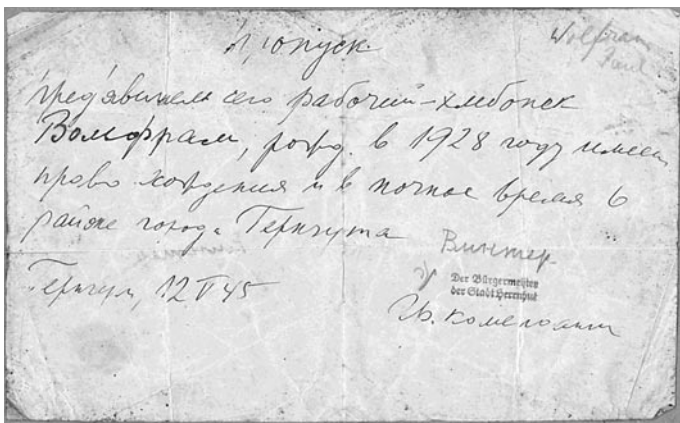 Пропуск
Wolfram
Paul
Предявитель сего рабочий-хлебопек
Вольфрам, рожд. в 1928 году имеет
право хождения и в ночное время в
районе города Гернгута
Винтер
Гернгут, 12 V 45
Der Bürgermeister
der Stadt Herrnhut